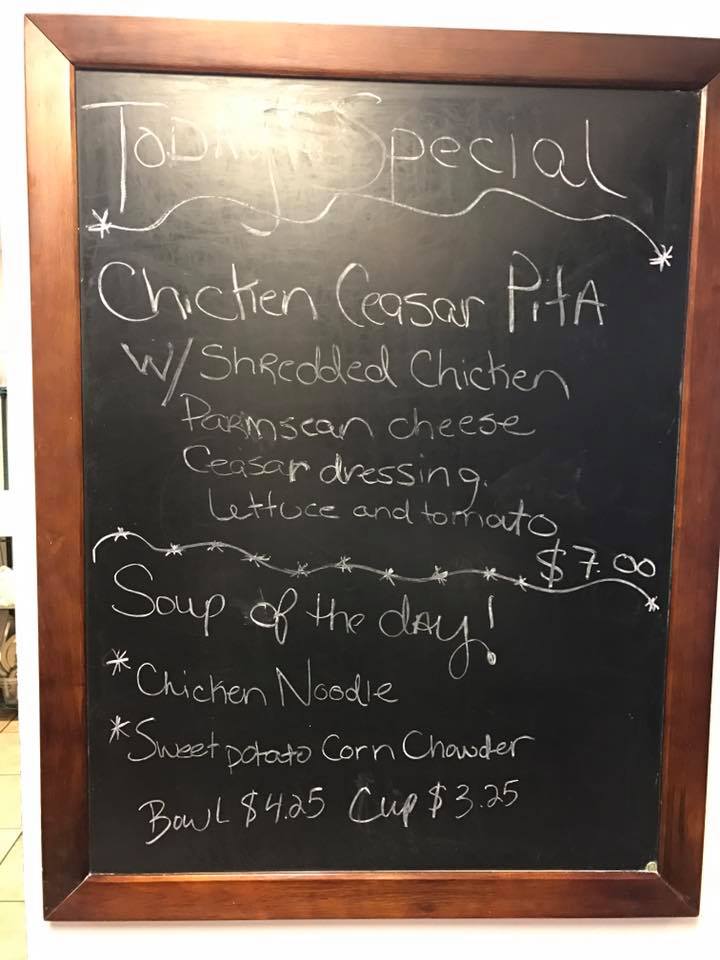 Today's Special
Chicken Ceasar PitA
W/ Shredded Chicken
Parmsean cheese
Ceasar dressing.
lettuce and tomato
$7.00
Soup of the day!
* Chicken Noodle
* Sweet potato Corn Chowder
Bowl $4.25 Cup $3.25